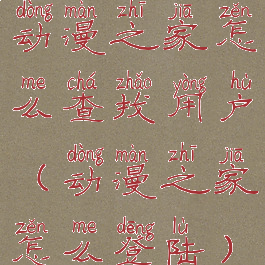 dòng màn zhī jiā zěn
动漫之家怎
me chá zhǎo yòng hù
么查找用户
dòng màn zhī jiā
（动漫之家
zěn me dēng lù
怎么登陆）